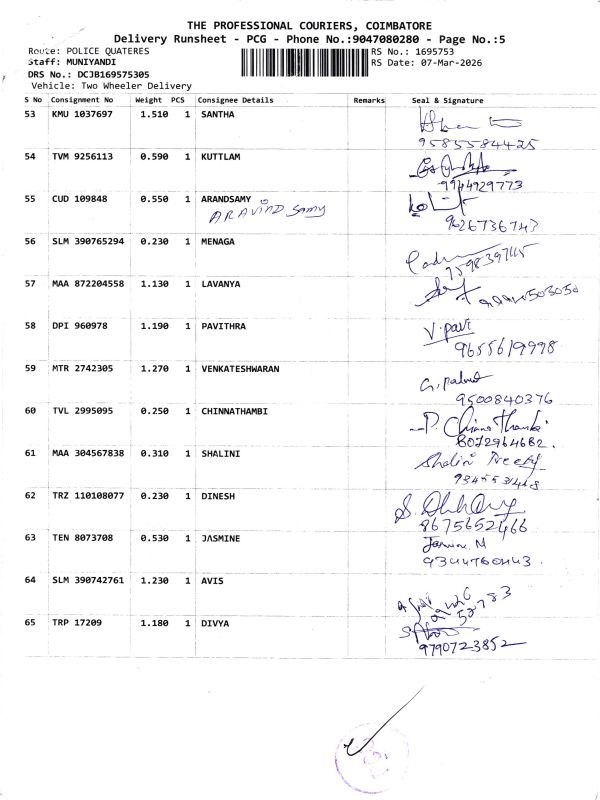 THE PROFESSIONAL COURIERS, COIMBATORE
Delivery Runsheet - PCG - Phone No.:9047080280 - Page No.:5
Route: POLICE QUATERES
Staff: MUNIYANDI
DRS No.: DCJB169575305
Vehicle: Two Wheeler Delivery
RS No.: 1695753
RS Date: 07-Mar-2026
S No Consignment No Weight PCS Consignee Details Remarks Seal & Signature
53 KMU 1037697 1.510 1 SANTHA
9585584425
54 TVM 9256113 0.590 1 KUTTLAM
9944929773
55 CUD 109848 0.550 1 ARANDSAMY
ARAVIND Samy
9626736743
56 SLM 390765294 0.230 1 MENAGA
57 MAA 872204558 1.130 1 LAVANYA
58 DPI 960978 1.190 1 PAVITHRA
V. pavi
9655619998
59 MTR 2742305 1.270 1 VENKATESHWARAN
9500840376
60 TVL 2995095 0.250 1 CHINNATHAMBI
P. Chinna Thambi
8072964682.
61 MAA 304567838 0.310 1 SHALINI
Shalini
62 TRZ 110108077 0.230 1 DINESH
8675652466
63 TEN 8073708 0.530 1 JASMINE
9344760443.
64 SLM 390742761 1.230 1 AVIS
65 TRP 17209 1.180 1 DIVYA
9790723852